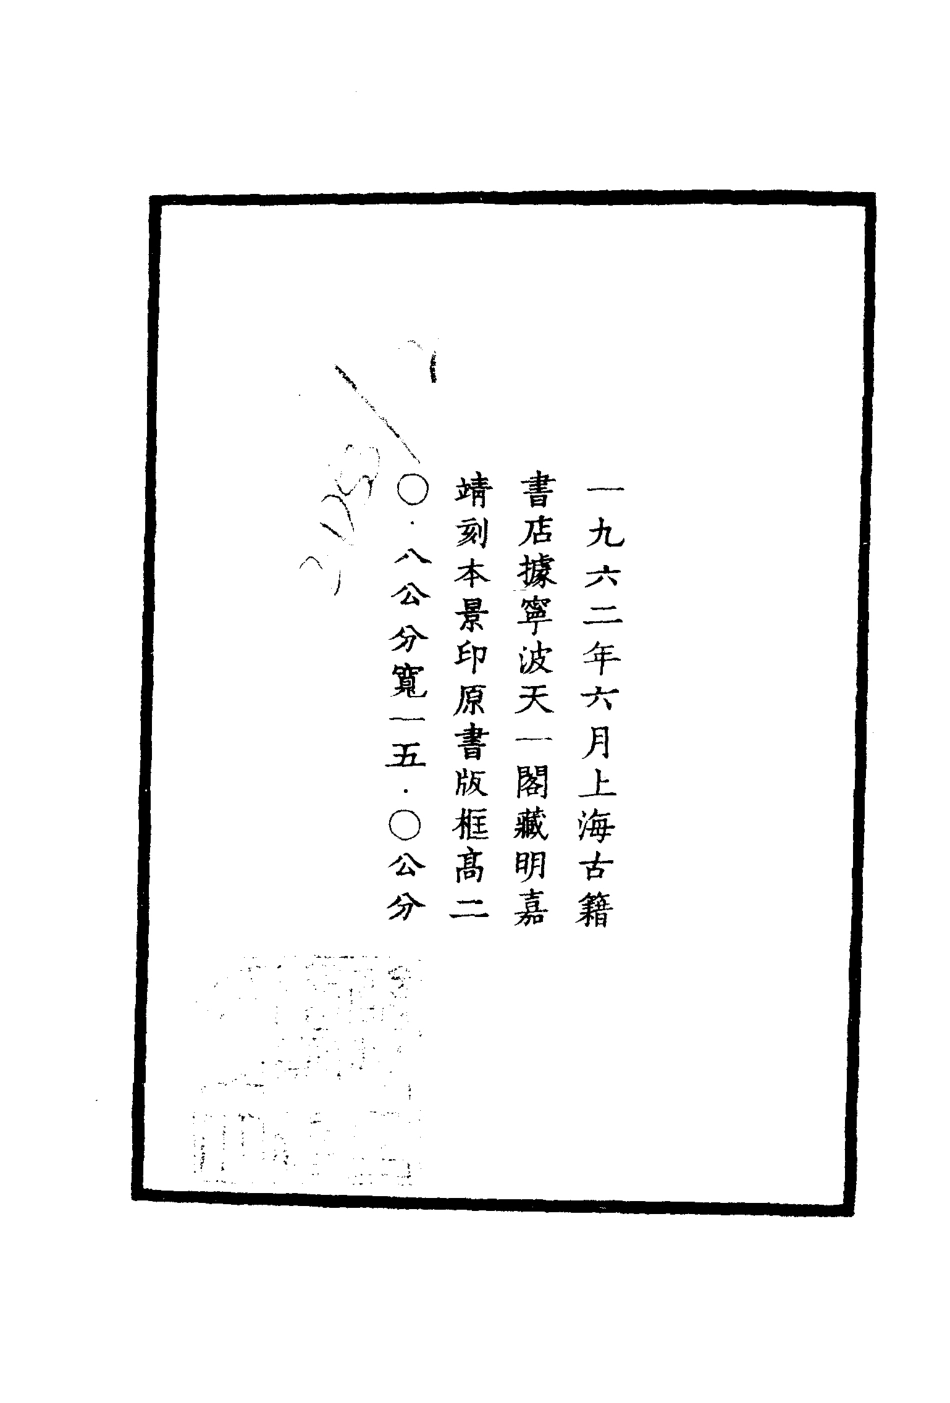 一九六二年六月上海古籍
書店據寧波天一閣藏明嘉
靖刻本景印原書版框高二
〇·八公分寬一五·〇公分